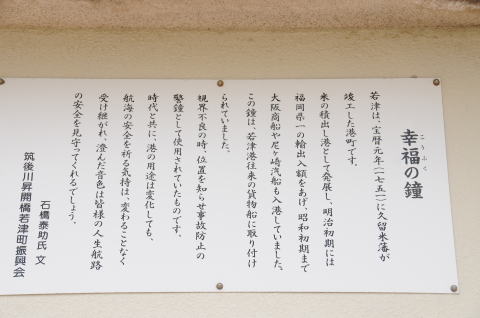 こうふく
幸福の鐘
若津は、宝暦元年(一七五一)に久留米藩が
竣工した港町です。
米の積出し港として発展し、明治初期には
福岡県一の輸出入額をあげ、昭和初期まで
大阪商船や尼ヶ崎汽船も入港していました。
この鐘は、若津港往来の貨物船に取り付け
られていました。
視界不良の時、位置を知らせ事故防止の
警鐘として使用されていたものです。
時代と共に、港の用途は変化しても、
航海の安全を祈る気持は、変わることなく
受け継がれ、澄んだ音色は皆様の人生航路
の安全を見守ってくれるでしょう。
石橋泰助氏 文
筑後川昇開橋若津町振興会